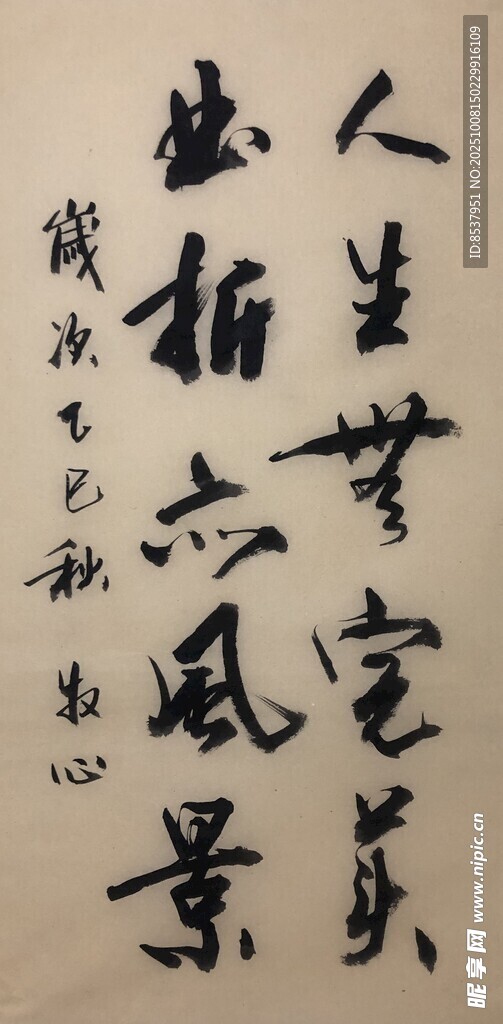 人生無完美
曲折亦風景
歲次乙巳秋 牧心
ID:8537951 NO:20251008150229916109
昵享网 www.nipic.cn